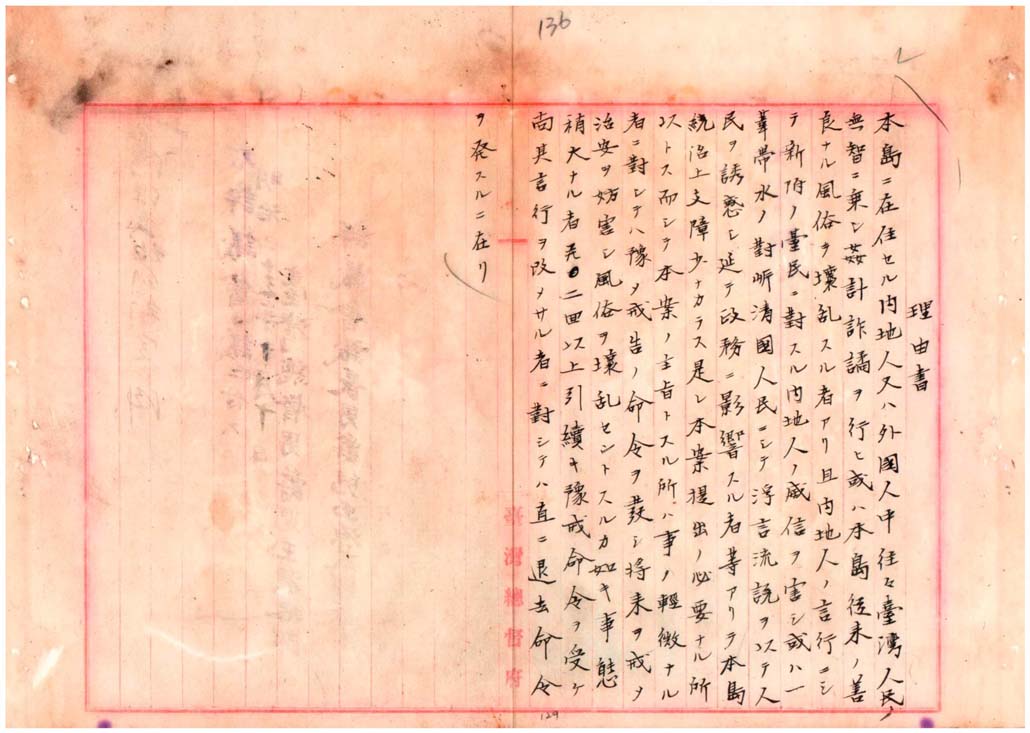 136
理由書
本島ニ在住セル内地人又ハ外國人中往々臺灣人民ノ
無智ニ乗シ姦計詐譎ヲ行ヒ或ハ本島従来ノ善
良ナル風俗ヲ壞乱スル者アリ且内地人ノ言行ニシ
テ新附ノ臺民ニ對スル内地人ノ威信ヲ害シ或ハ一
葦帯水ノ對岍清國人民ニシテ浮言流説ヲ以テ人
民ヲ誘惑シ延テ政務ニ影響スル者等アリテ本島
統治上支障少ナカラス是レ本案提出ノ必要ナル所
以トス而シテ本案ノ主旨トスル所ハ事ノ輕微ナル
者ニ對シテハ豫メ戒告ノ命令ヲ發シ将来ヲ戒メ
治安ヲ妨害シ風俗ヲ壞乱セントスルカ如キ事態
稍大ナル者二回以上引續キ豫戒命令ヲ受ケ
尚其言行ヲ改メサル者ニ對シテハ直ニ退去命令
ヲ発スルニ在リ
臺灣總督府
129